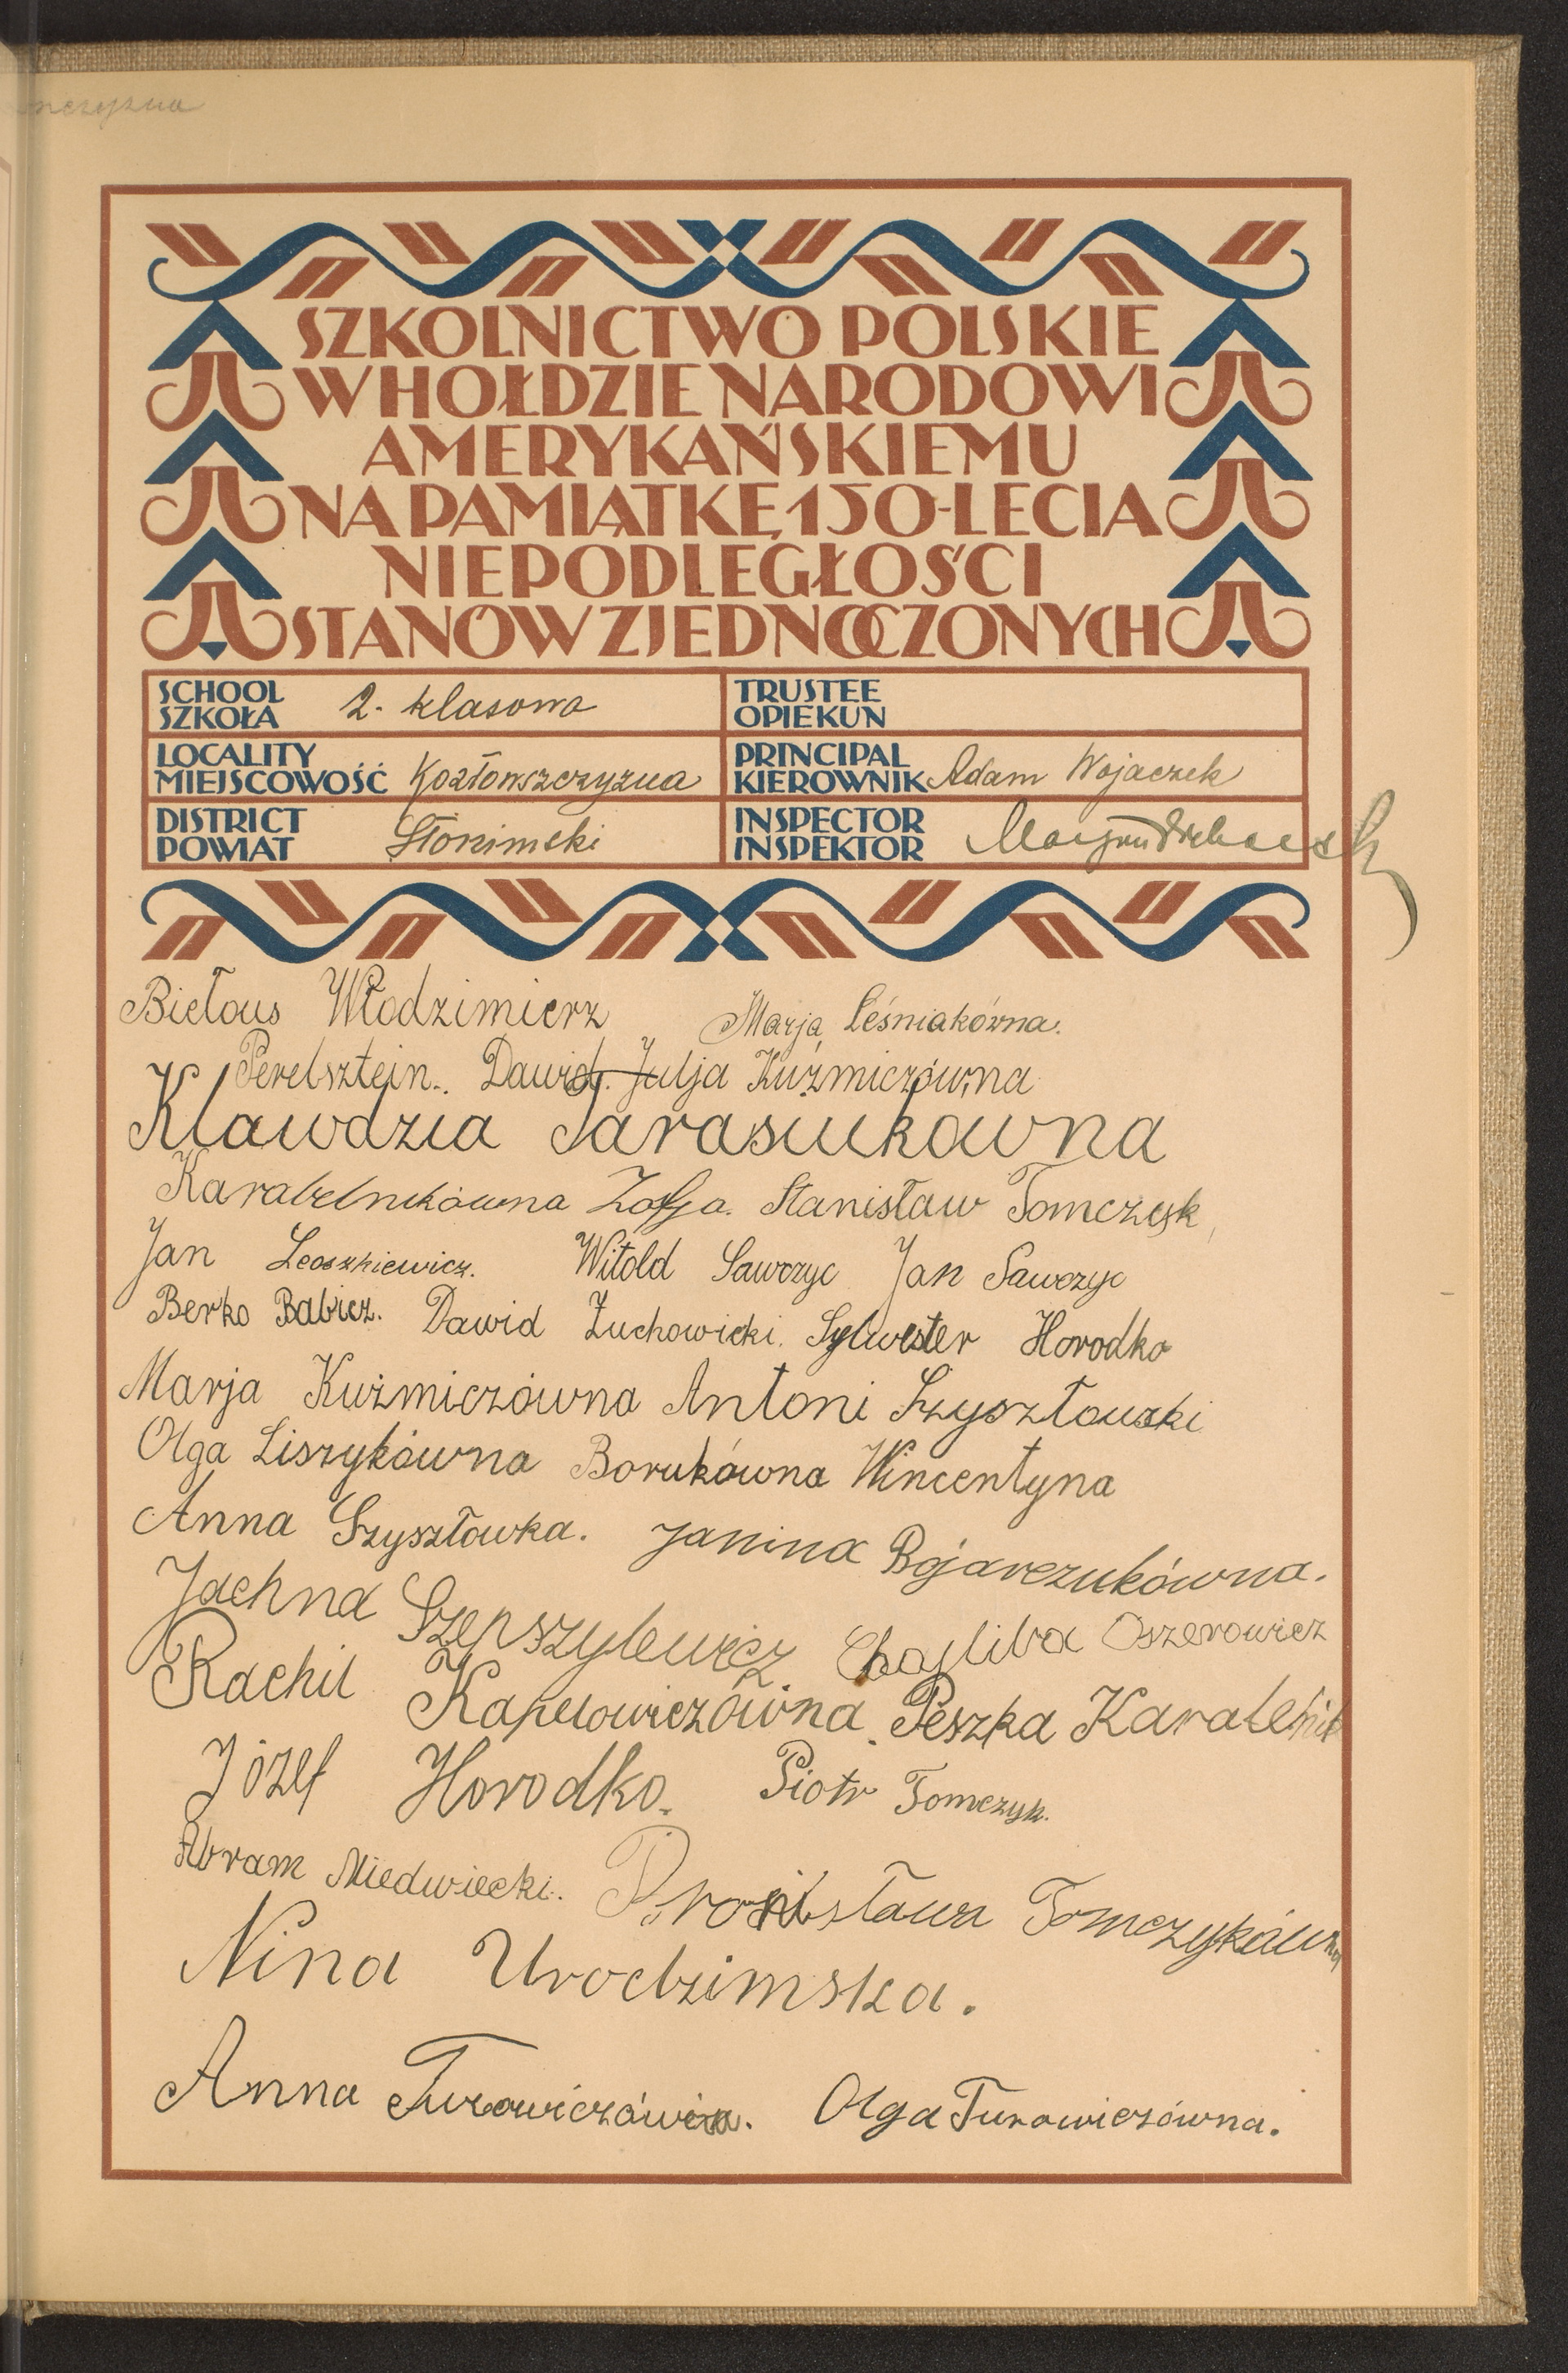 SZKOLNICTWO POLSKIE
W HOŁDZIE NARODOWI
AMERYKAŃSKIEMU
NA PAMIĄTKĘ 150-LECIA
NIEPODLEGŁOŚCI
STANÓW ZJEDNOCZONYCH
SCHOOL SZKOŁA 2. klasowa
TRUSTEE OPIEKUN
LOCALITY MIEJSCOWOŚĆ Kozłowszczyzna
PRINCIPAL KIEROWNIK Adam Wojaczek
DISTRICT POWIAT Słonimski
INSPECTOR INSPEKTOR
Biełous Włodzimierz Marja Leśniakówna.
Perelsztejn. Dawid. Julja Kuźmiczówna
Klawdzia Tarasiukówna
Karabelnikówna Zofja. Stanisław Tomczyk
Jan Leoszkiewicz. Witold Sawczyc Jan Sawczyc
Berko Babicz. Dawid Żuchowicki. Sylwester Horodko
Marja Kuźmiczówna Antoni Szyszłowski
Olga Liszykówna Borukówna Wincentyna
Anna Szyszłowka. Janina Bojarczukówna.
Jachna Szepszylewicz Chajliba Oszerowicz
Rachil Kapelowiczówna. Peszka Karalenik
Józef Horodko. Piotr Tomczyk.
Abram Miedwiecki. Bronisława Tomczykówna
Nina Urodzimska.
Anna Turowiczówna. Olga Turowiczówna.